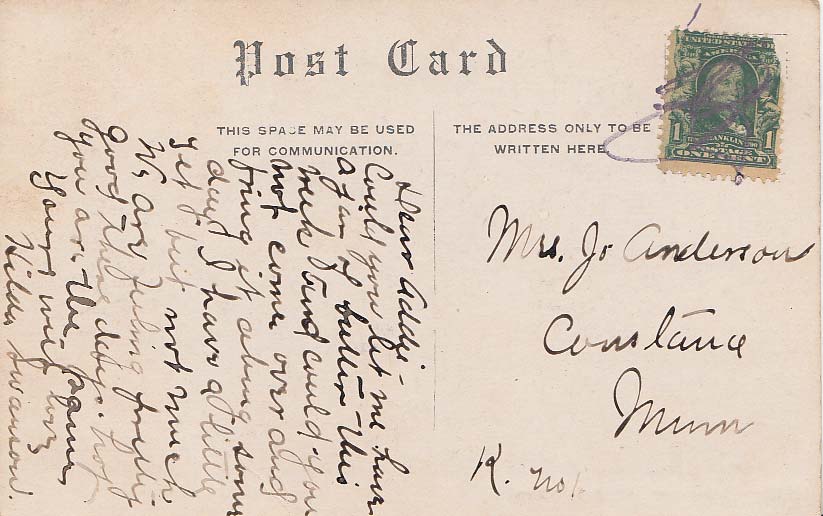 Post Card
THIS SPACE MAY BE USED
FOR COMMUNICATION.
THE ADDRESS ONLY TO BE
WRITTEN HERE.
UNITED STATES
FRANKLIN
1 1
ONE CENT
Dear Addie -
Could you let me have
a jar of butter this
week & and could you
not come over and
bring it along some
day? I have a little
yet but not much
We are feeling pretty
good these days. hop
you are the same,
Yours with love
Hilda Swanson.
Mrs. Jo Anderson
Constance
Minn
R. No 1.